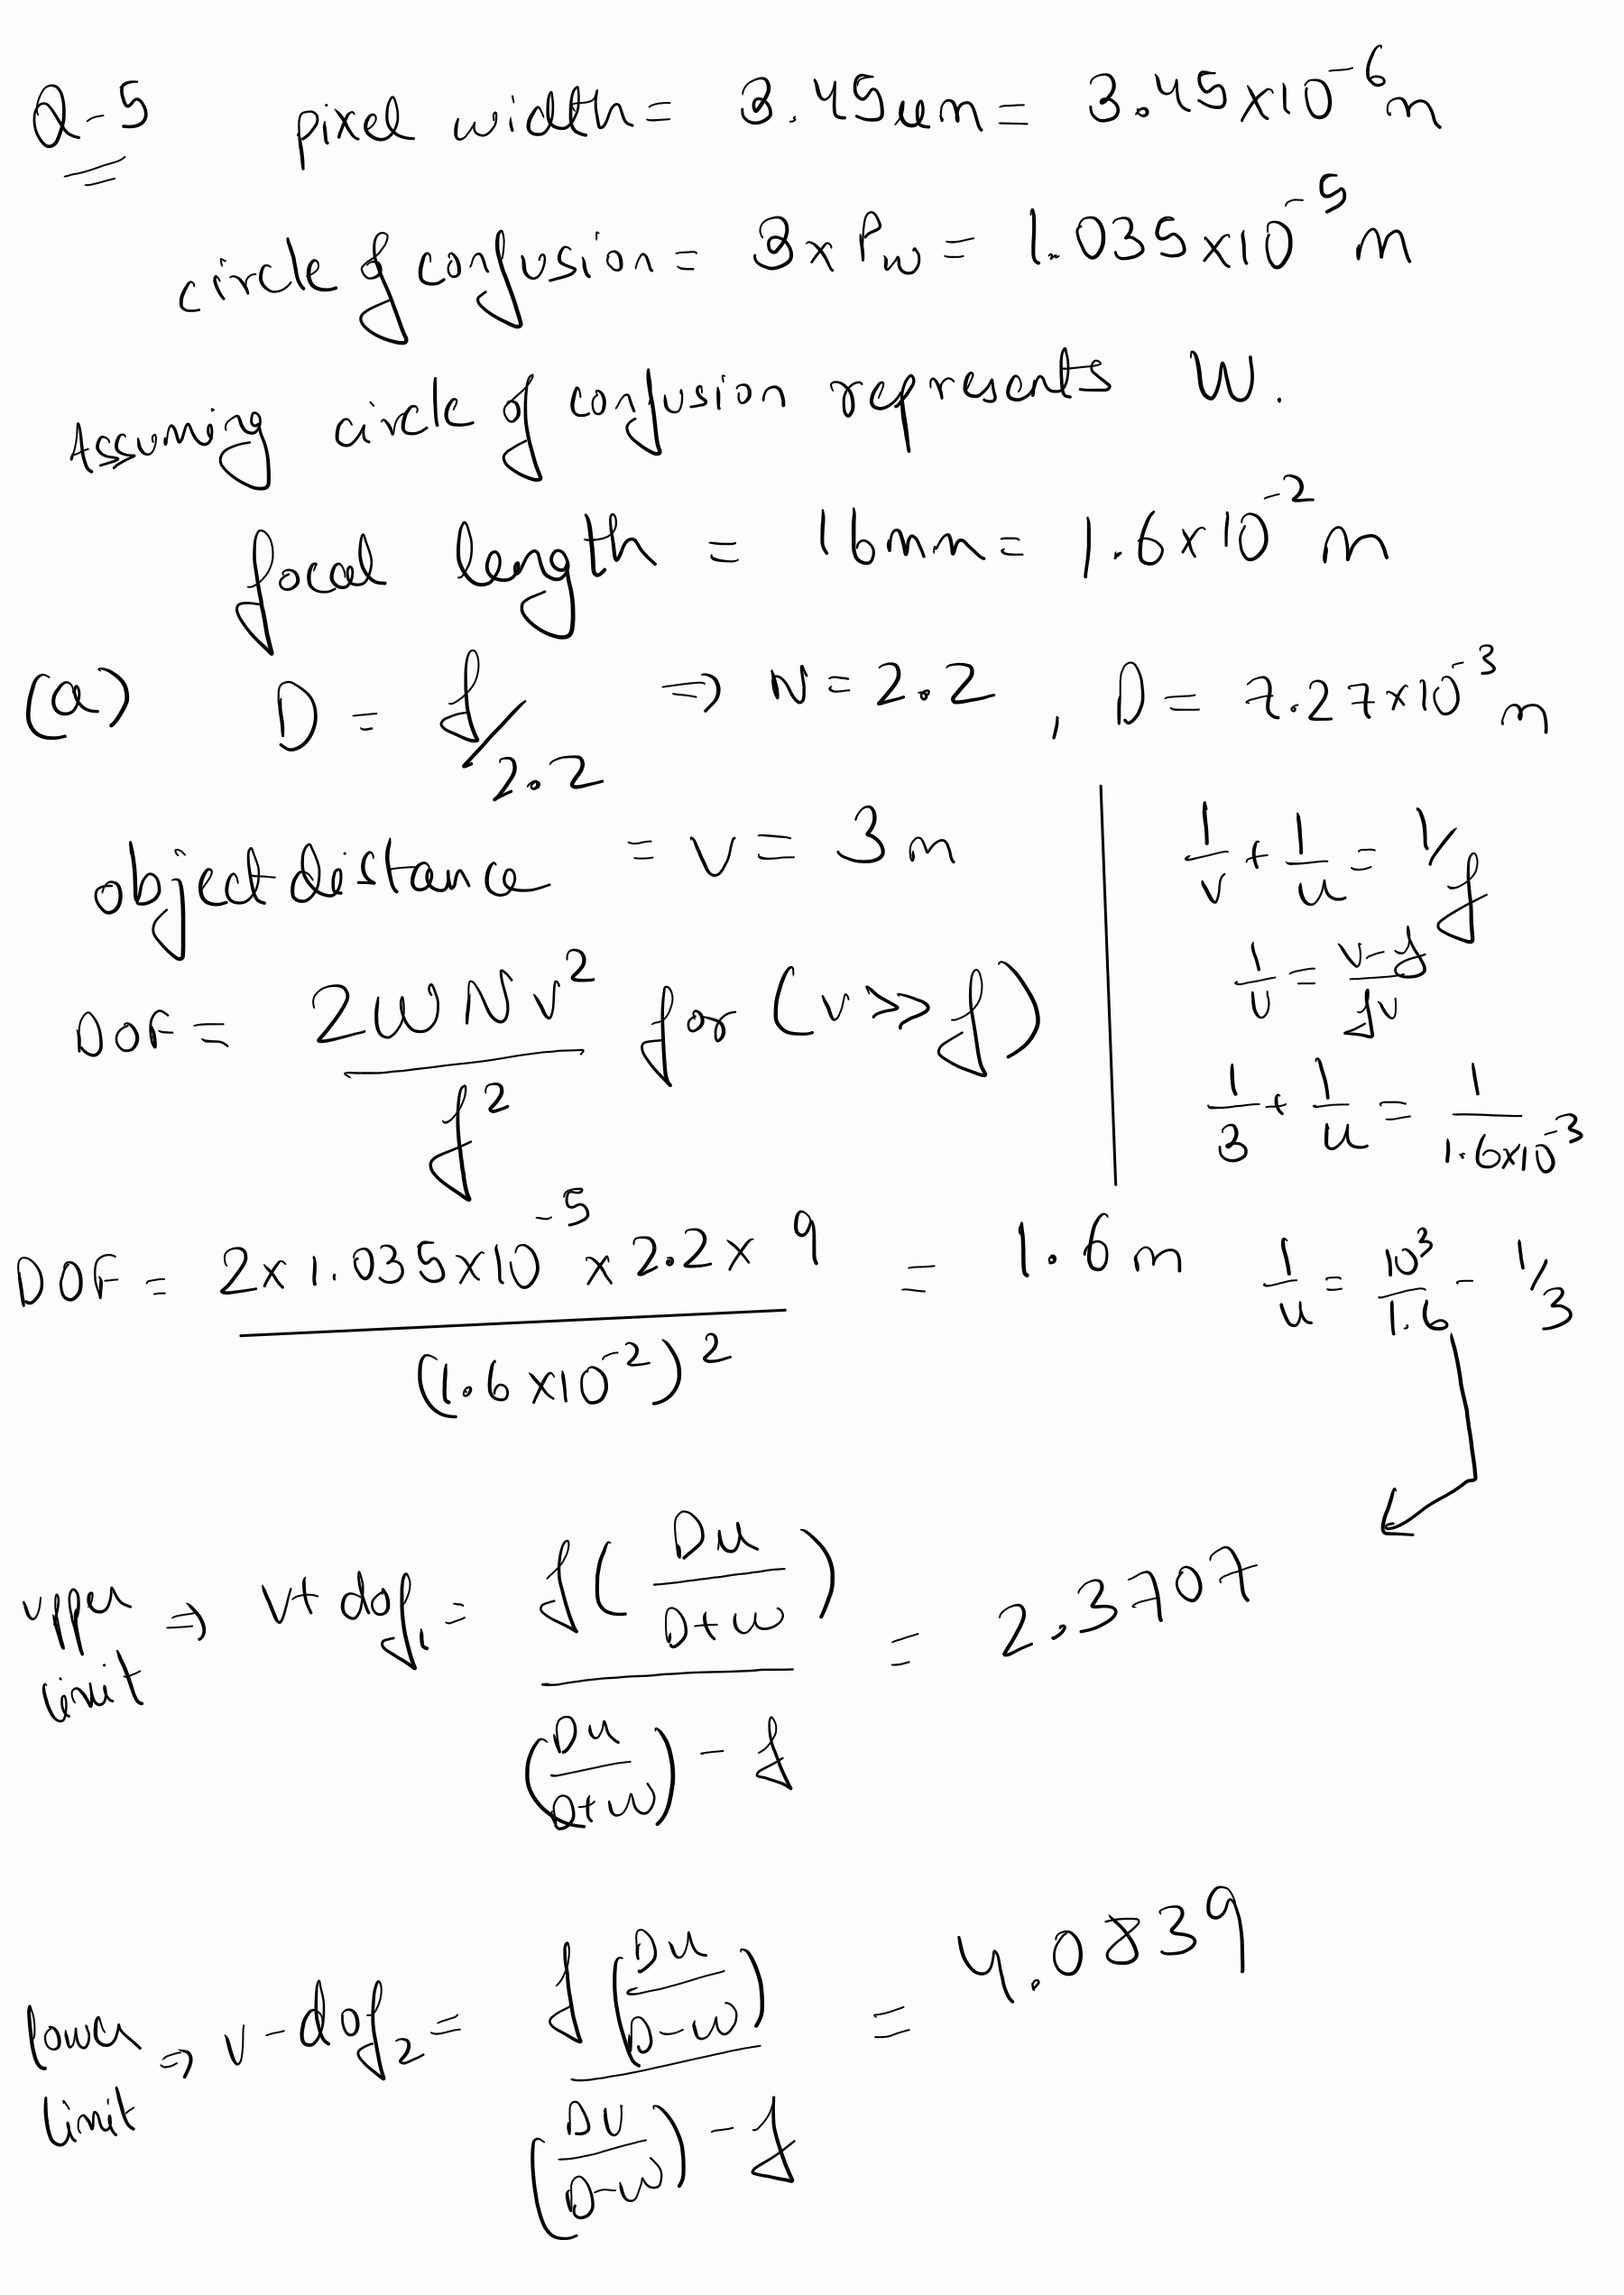 Q-5 pixel width = 3.45um = 3.45×10^-6 m
circle of confusion = 3×Pw = 1.035×10^-5 m
Assuming circle of confusion represents W.
focal length = 16mm = 1.6×10^-2 m
(a) D = f/2.2 ⇒ N = 2.2 , D = 7.27×10^-3 m
object distance = v = 3 m
DOF = 2WNv^2/f^2 for (v>>f)
1/v + 1/u = 1/f
1/u = (v-f)/fv
1/3 + 1/u = 1/(1.6×10^-3)
DOF = (2×1.035×10^-5×2.2×9)/(1.6×10^-2)^2 = 1.6 m
1/u = 10^3/1.6 - 1/3
upper limit ⇒ v+dof1 = f(Du/(D+w))/((Du/(D+w))-f) = 2.3707
lower limit ⇒ v-dof2 = f(Du/(D-w))/((Du/(D-w))-f) = 4.0839